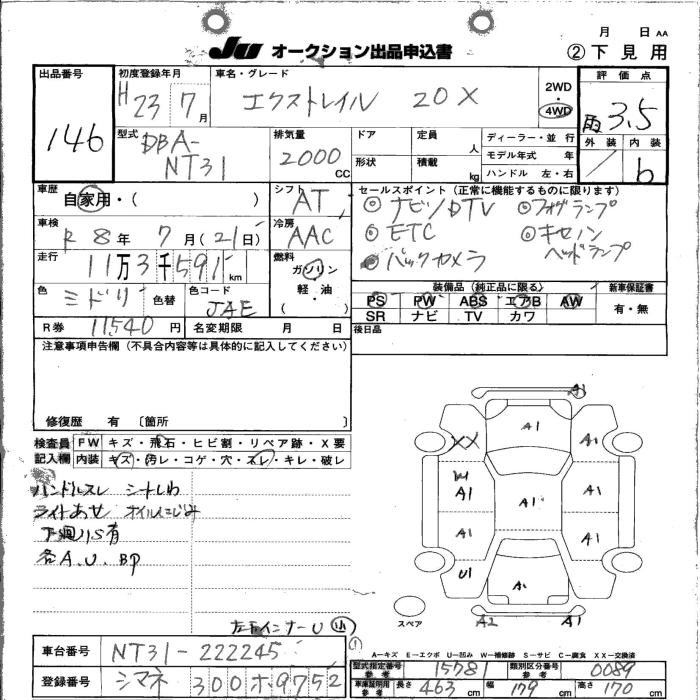 月 日 AA
JU オークション出品申込書
② 下見用
出品番号
146
初度登録年月
H 23 7月
車名・グレード
エクストレイル 20X
2WD・4WD
評価点
雨 3.5
外装 内装
/ b
型式
DBA-
NT31
排気量
2000 CC
ドア
形状
定員 人
積載 kg
ディーラー・並行
モデル年式 年
ハンドル 左・右
車歴
自家用・( )
シフト
AT
セールスポイント (正常に機能するものに限ります)
◎ナビ/DTV ◎フォグランプ
◎ETC ◎キセノンヘッドランプ
バックカメラ
車検
R 8年 7月(21日)
冷房
AAC
走行
11万3千591km
燃料
ガソリン
軽・油
( )
色
ミドリ
色替
色コード
JAE
装備品 (純正品に限る)
PS PW ABS エアB AW
SR ナビ TV カワ
新車保証書
有・無
R券 11540円
名変期限 月 日
後日品
注意事項申告欄 (不具合内容等は具体的に記入してください)
修復歴 有 〔箇所 〕
検査員記入欄
FW キズ・飛石・ヒビ割・リペア跡・X要
内装 キズ・汚レ・コゲ・穴・スレ・キレ・破レ
ハンドルスレ シートしわ
ライトあせ オイルにじみ
下廻りS有
各A.U.BP
A1
A1
XX
A1
A1
A1
A1
A1
A1
A1
U1
A1
スペア
A2
A1
A-キズ E-エクボ U-凹み W-補修跡 S-サビ C-腐食 XX-交換済
車台番号
NT31-222245
登録番号
シマネ 300 ホ 9752
型式指定番号 参考
1578
類別区分番号 参考
0089
車庫証明用 参考
長さ 463 cm
幅 179 cm
高さ 170 cm